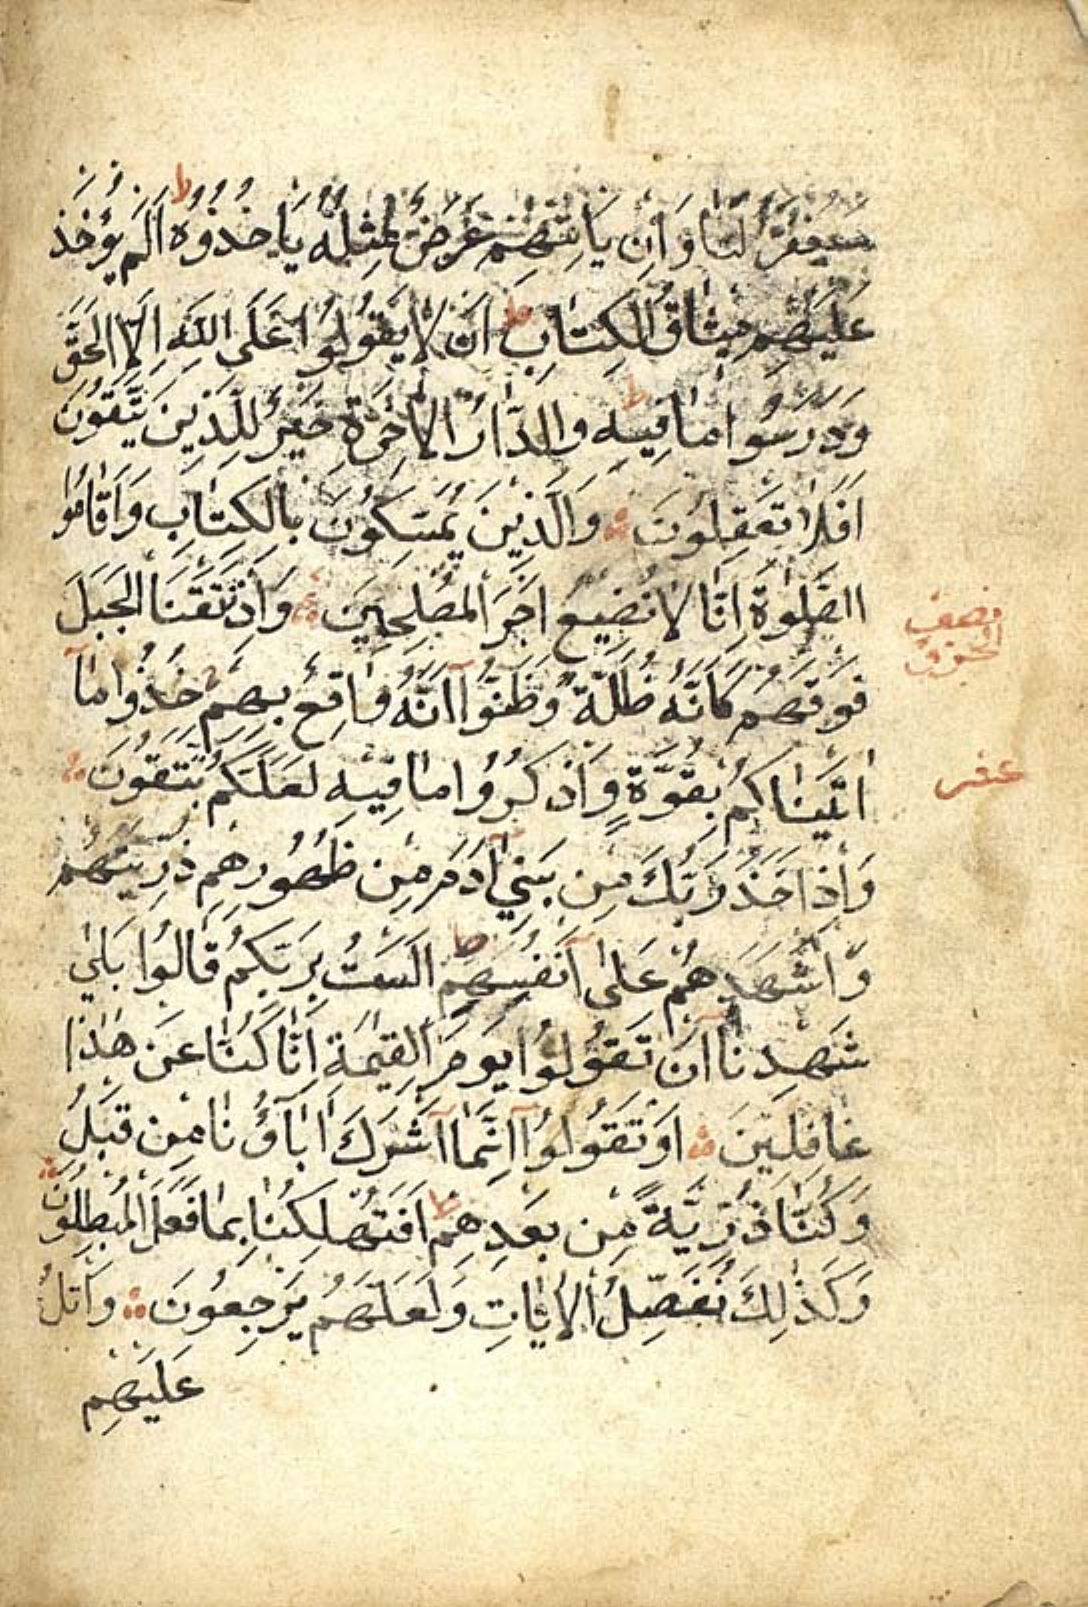 سَيُغْفَرُ لَنَا وَاِنْ يَاْتِهِمْ عَرَضٌ مِثْلُهُ يَاْخُذُوهُ ط اَلَمْ يُؤْخَذْ
عَلَيْهِمْ مِيثَاقُ الْكِتَابِ اَنْ لَا يَقُولُوا عَلَى اللّٰهِ اِلَّا الْحَقَّ
وَدَرَسُوا مَا فِيهِ ط وَالدَّارُ الْاٰخِرَةُ خَيْرٌ لِلَّذِينَ يَتَّقُونَ
اَفَلَا تَعْقِلُونَ وَالَّذِينَ يُمَسِّكُونَ بِالْكِتَابِ وَاَقَامُوا
الصَّلٰوةَ اِنَّا لَا نُضِيعُ اَجْرَ الْمُصْلِحِينَ وَاِذْ نَتَقْنَا الْجَبَلَ
نصف
الحزب
فَوْقَهُمْ كَاَنَّهُ ظُلَّةٌ وَظَنُّوا اَنَّهُ وَاقِعٌ بِهِمْ خُذُوا مَا
اٰتَيْنَاكُمْ بِقُوَّةٍ وَاذْكُرُوا مَا فِيهِ لَعَلَّكُمْ تَتَّقُونَ
عشر
وَاِذْ اَخَذَ رَبُّكَ مِنْ بَنِي اٰدَمَ مِنْ ظُهُورِهِمْ ذُرِّيَّتَهُمْ
وَاَشْهَدَهُمْ عَلٰى اَنْفُسِهِمْ ط اَلَسْتُ بِرَبِّكُمْ قَالُوا بَلٰى
شَهِدْنَا اَنْ تَقُولُوا يَوْمَ الْقِيٰمَةِ اِنَّا كُنَّا عَنْ هٰذَا
غَافِلِينَ اَوْ تَقُولُوا اِنَّمَا اَشْرَكَ اٰبَاؤُنَا مِنْ قَبْلُ
وَكُنَّا ذُرِّيَّةً مِنْ بَعْدِهِمْ ط اَفَتُهْلِكُنَا بِمَا فَعَلَ الْمُبْطِلُونَ
وَكَذٰلِكَ نُفَصِّلُ الْاٰيَاتِ وَلَعَلَّهُمْ يَرْجِعُونَ وَاتْلُ
عَلَيْهِمْ